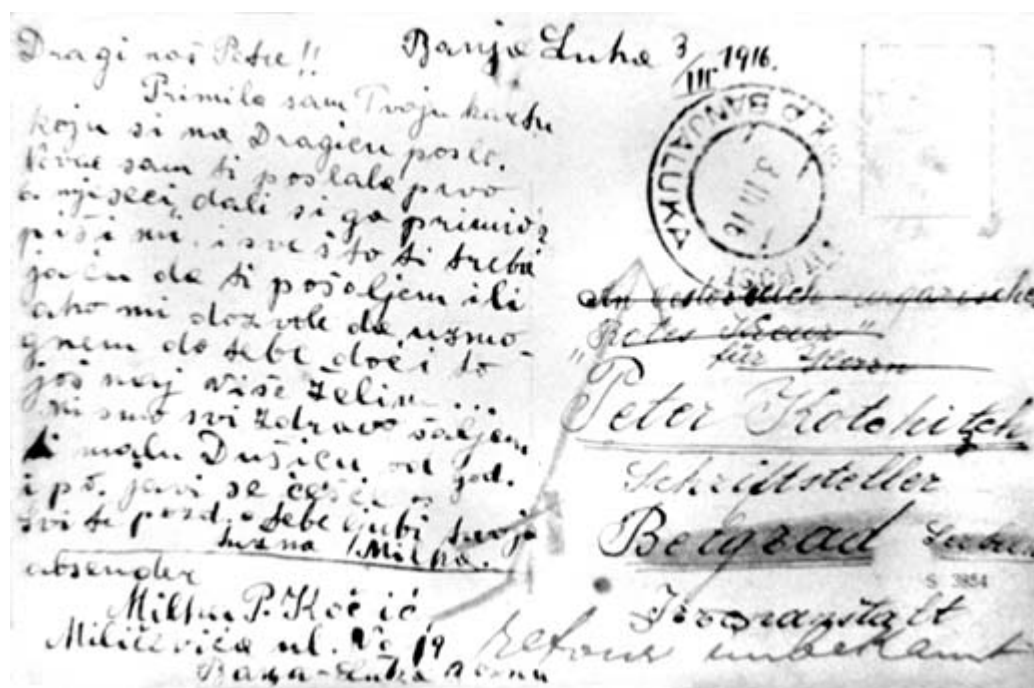 Banja Luka 3/III 1916.
Dragi naš Petre!!
Primila sam Tvoju kartu
koju si na Dragicu poslo.
sam ti poslala prvo
mjseci dali si ga primio?
piši mi, i sve što ti treba
ja ću da ti pošaljem ili
ako mi dozvole da uzmo-
gnem do tebe doći to
još naj više želim...
Mi smo svi zdravo šaljem
i malu Dušicu od god.
i po. javi se češće
svi te pozd. a tebe ljubi tvoja
tužna Milka.
absender
Milka P. Kočić
Milićevića ul. No 19
Banja-Luka
K.P. BANJALUKA
3 III 16
An österreich-ungarische
Rotes Kreuz"
für Herrn
"Peter Kotchitch
Schriftsteller
Belgrad
S 3854
Irrenanstalt
retour unbekannt